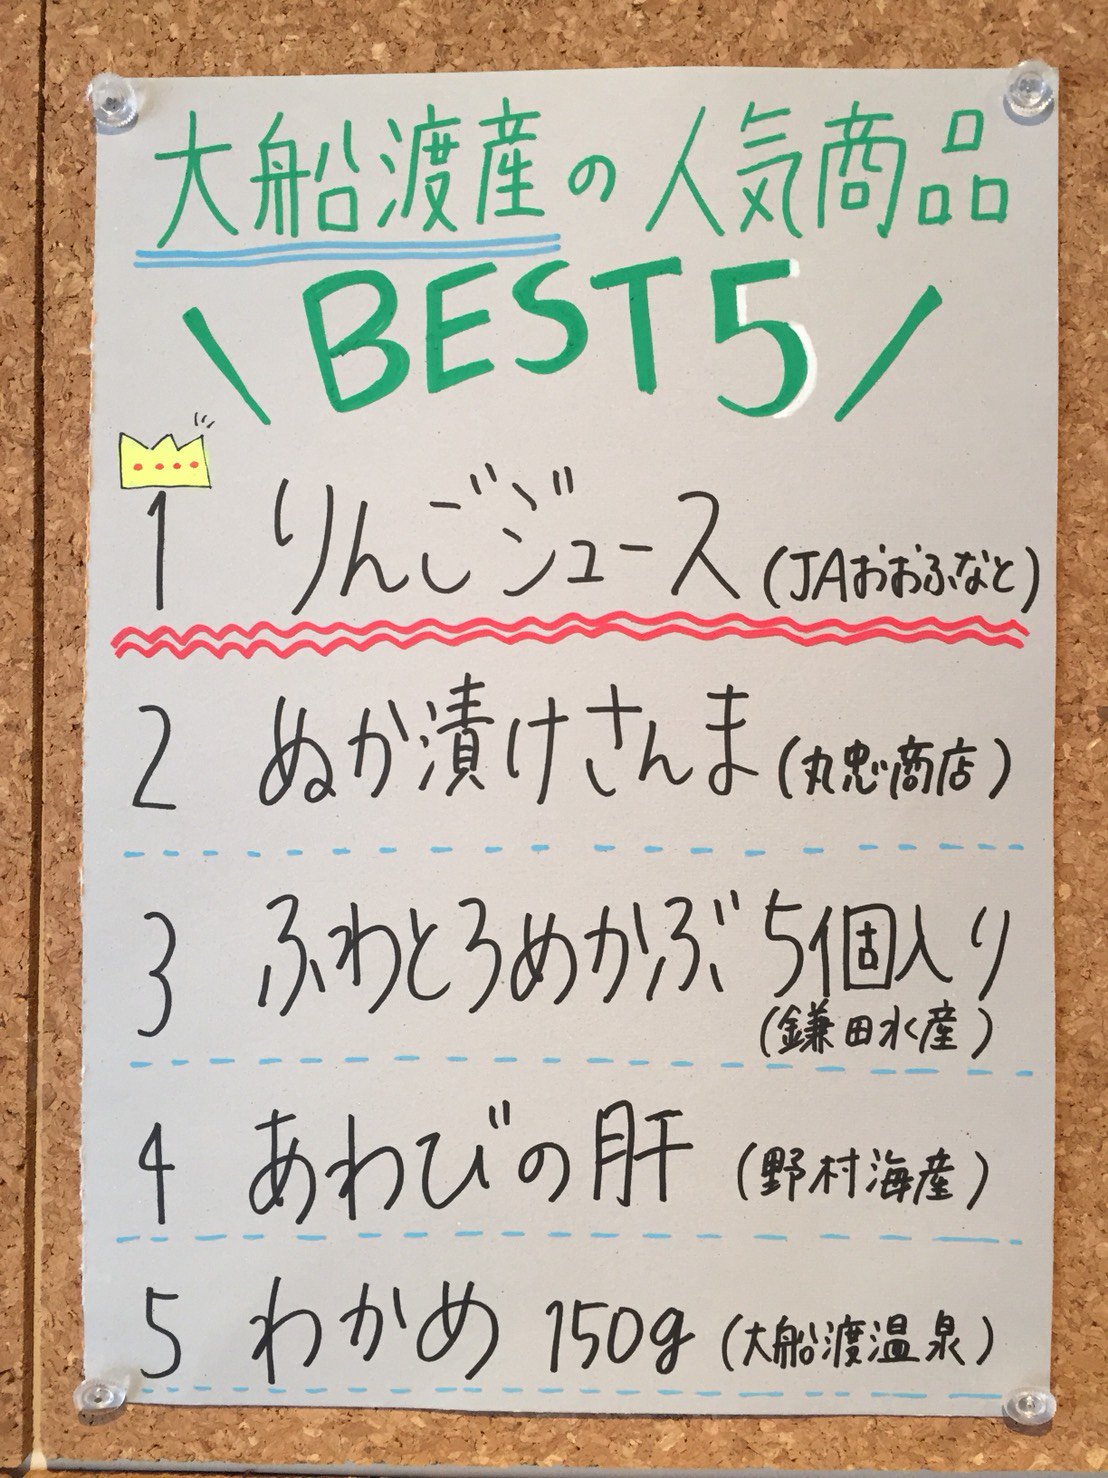 大船渡産の人気商品
\BEST5/
1 りんごジュース (JAおおふなと)
2 ぬか漬けさんま (丸忠商店)
3 ふわとろめかぶ 5個入り
(鎌田水産)
4 あわびの肝 (野村海産)
5 わかめ 150g (大船渡温泉)